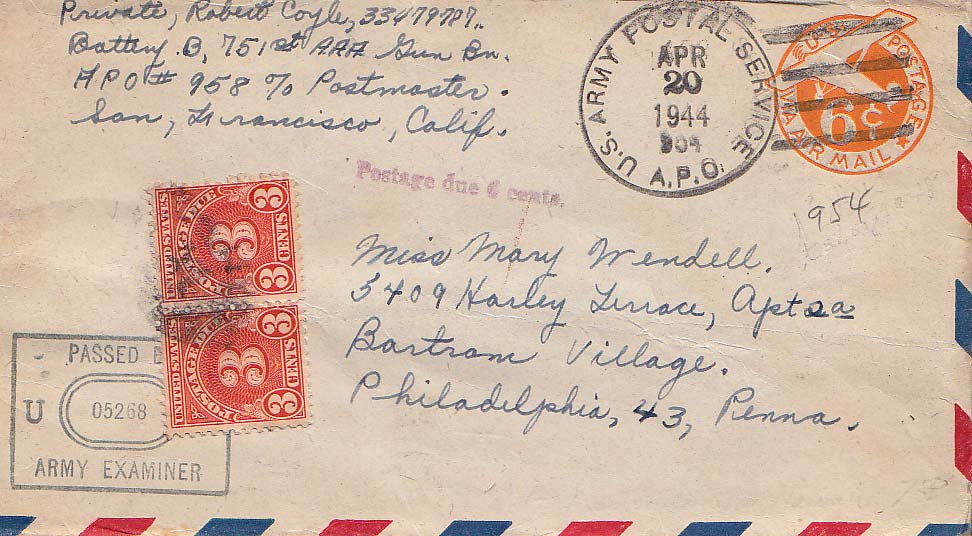 Private, Robert Coyle, 33479787.
Battery B, 751st AAA Gun Bn.
APO # 958 % Postmaster.
San, Francisco, Calif.
U.S. ARMY POSTAL SERVICE
APR
20
1944
A.P.O.
U.S. POSTAGE
6¢
VIA AIR MAIL
Postage due 6 cents.
954
UNITED STATES
POSTAGE DUE
3
3 CENTS 3
UNITED STATES
POSTAGE DUE
3
3 CENTS 3
Miss Mary Wendell.
5409 Harley Terrace, Apt 2a
Bartram Village.
Philadelphia, 43, Penna.
PASSED B
U 05268
ARMY EXAMINER